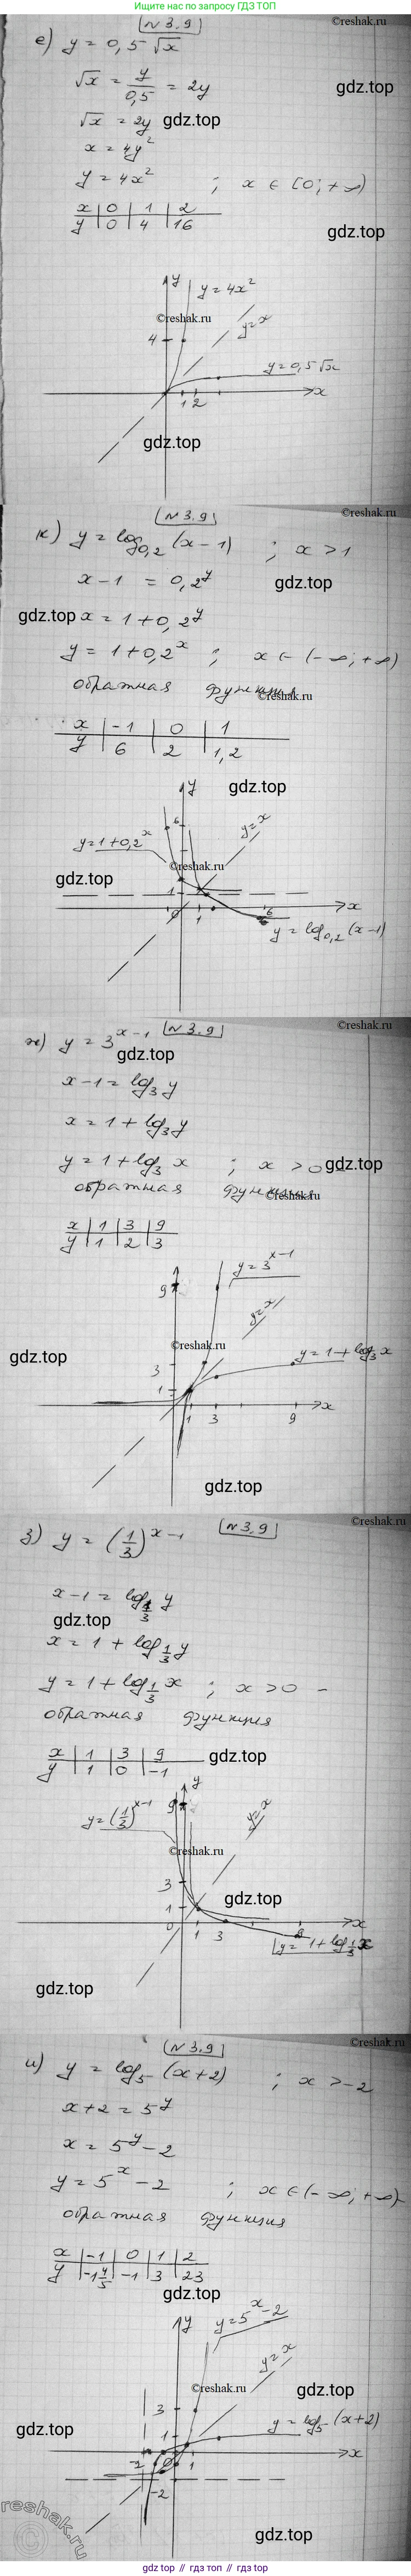 Ищите нас по запросу ГДЗ ТОП
№3.9
©reshak.ru
е) y = 0,5 √x
√x = y/0,5 = 2y
gdz.top
√x = 2y
gdz.top
x = 4y²
y = 4x² ; x ∈ [0; +∞)
x | 0 | 1 | 2
y | 0 | 4 | 16
gdz.top
y
y = 4x²
©reshak.ru
y = x
4
y = 0,5 √x
1 2
x
gdz.top
№3.9
©reshak.ru
к) y = log₀,₂ (x − 1) ; x > 1
x − 1 = 0,2^y
gdz.top
gdz.top
x = 1 + 0,2^y
y = 1 + 0,2^x ; x ∈ (−∞; +∞)
обратная функция
©reshak.ru
x | −1 | 0 | 1
y | 6 | 2 | 1,2
gdz.top
y
6
y = 1 + 0,2^x
y = x
©reshak.ru
gdz.top
1
0 1 6 x
y = log₀,₂ (x − 1)
№3.9
©reshak.ru
ж) y = 3^(x−1)
gdz.top
x − 1 = log₃ y
x = 1 + log₃ y
y = 1 + log₃ x ; x > 0
gdz.top
обратная функция
©reshak.ru
x | 1 | 3 | 9
y | 1 | 2 | 3
y = 3^(x−1)
9
y = x
©reshak.ru
gdz.top
y = 1 + log₃ x
3
1
1 3 9 x
gdz.top
№3.9
©reshak.ru
з) y = (1/3)^(x−1)
x − 1 = log_1/3 y
gdz.top
x = 1 + log_1/3 y
y = 1 + log_1/3 x ; x > 0 −
обратная функция
x | 1 | 3 | 9
y | 1 | 0 | −1
gdz.top
y
9
y = (1/3)^(x−1)
y = x
©reshak.ru
3
gdz.top
1
0 1 3 9 x
y = 1 + log_1/3 x
gdz.top
№3.9
©reshak.ru
и) y = log₅ (x + 2) ; x > −2
x + 2 = 5^y
x = 5^y − 2
y = 5^x − 2 ; x ∈ (−∞; +∞)
обратная функция
x | −1 | 0 | 1 | 2
y | −1 4/5 | −1 | 3 | 23
gdz.top
y
y = 5^x − 2
y = x
©reshak.ru
gdz.top
3
gdz.top
y = log₅ (x + 2)
1
−2 0 1 x
−2
reshak.ru
gdz.top
gdz top // гдз топ // gdz top